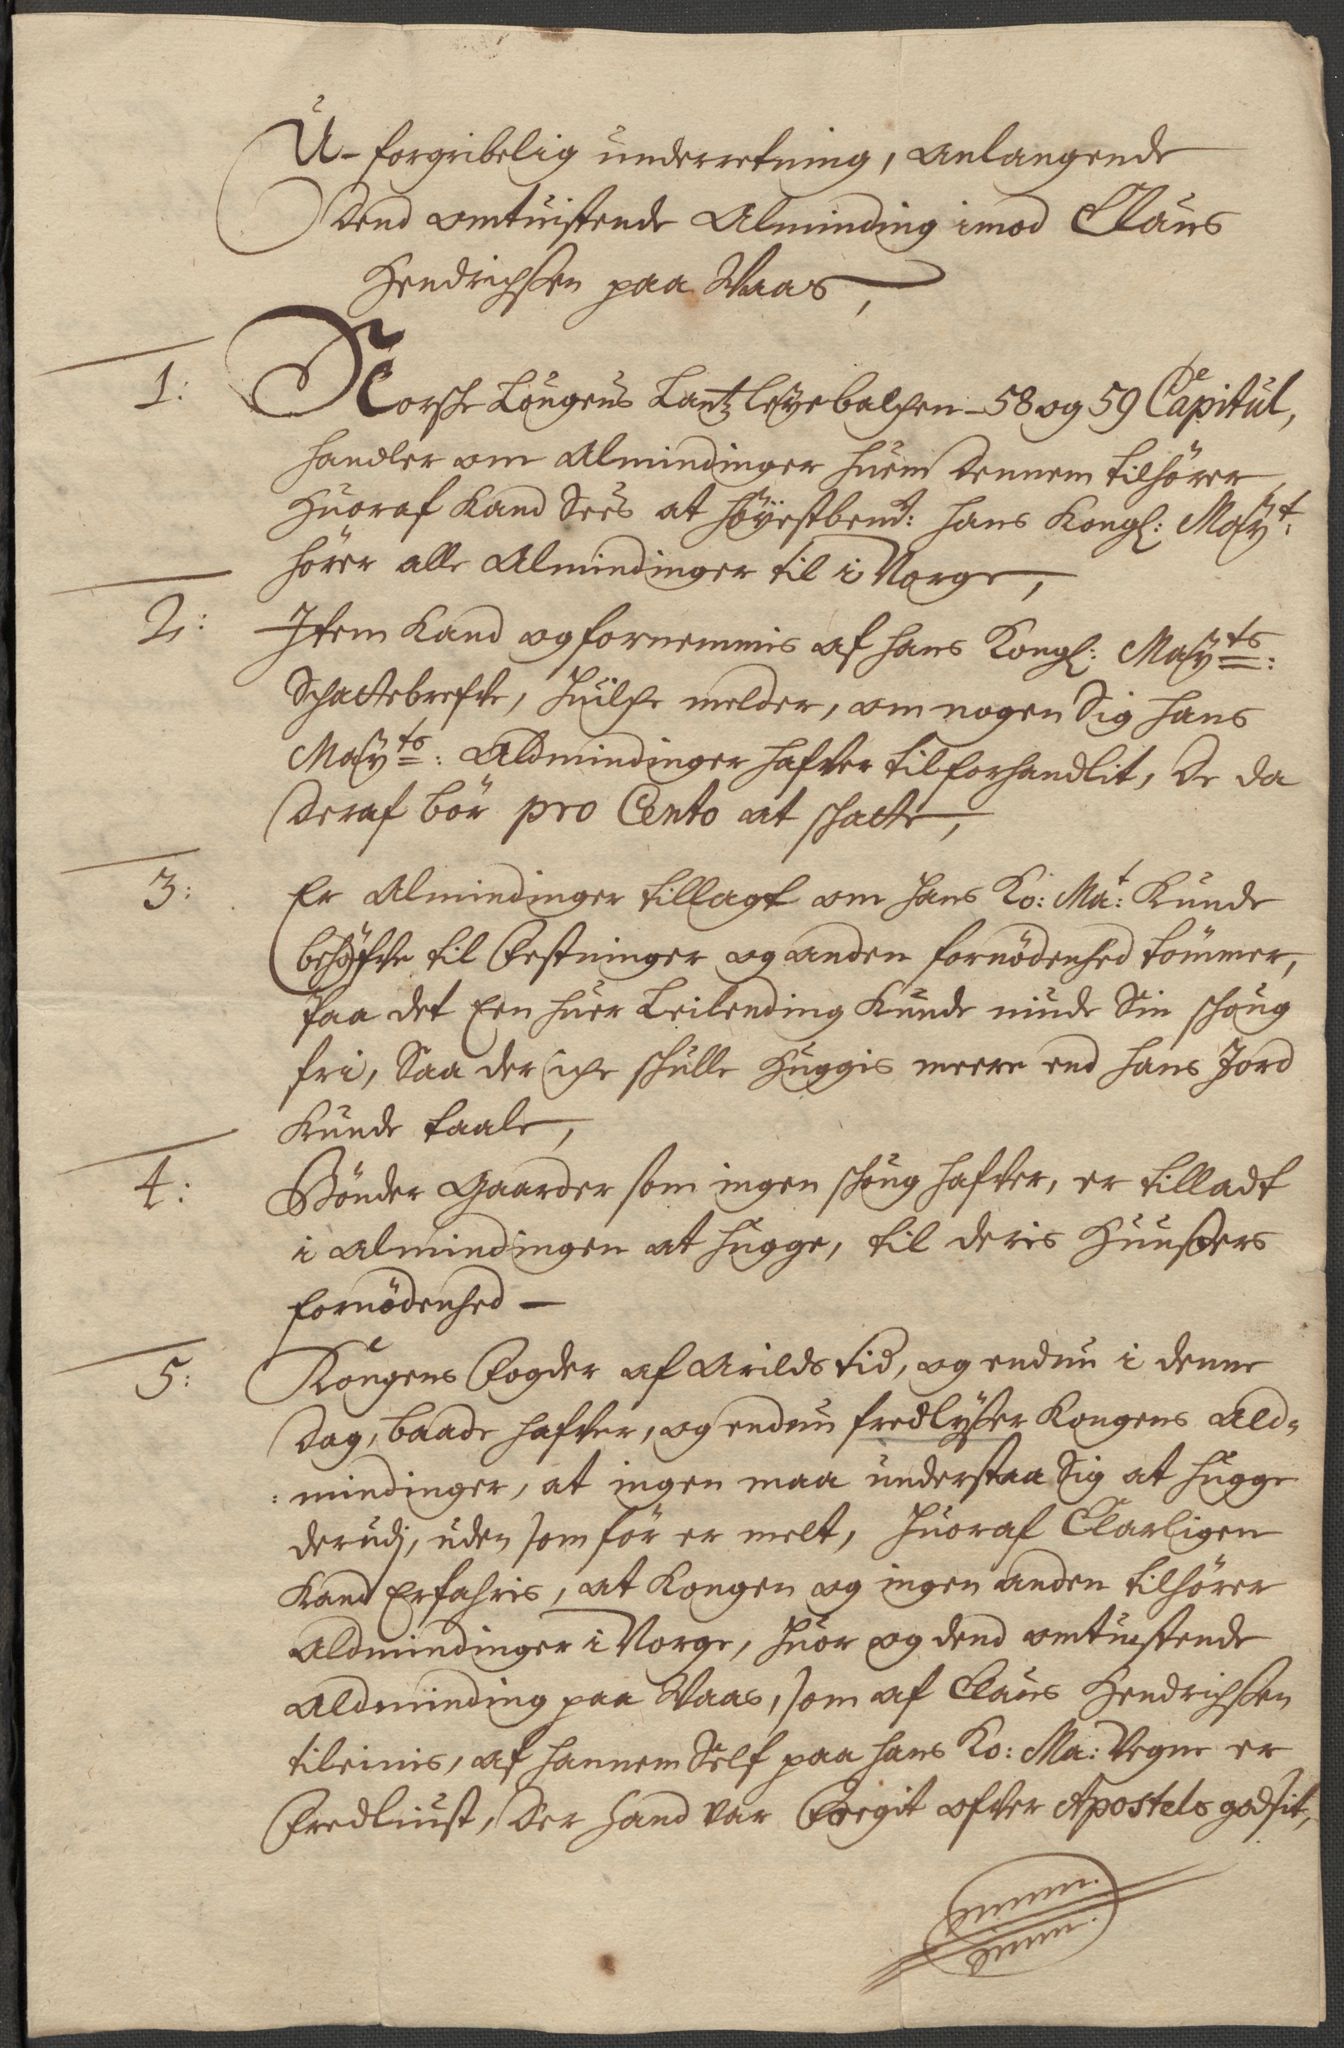 U-forgribelig underretning, anlangende
Dend omtuistende Alminding imod Claus
Hendrichsen paa Waas,
1: Norsche Lougens Lantzleyebalchen 58 og 59 Capitul,
handler om Almindinger huem dennem tilhører
Huoraf Kand Sees at høyestbemt: hans Kongl: Mayt:
hører alle Almindinger til i Norge,
2: Item Kand og fornemmis af hans Kongl: Mayts:
Schattebrefve, huilche melder, om nogen Sig hans
Mayts: Aldmindinger hafver tilforhandlit, De da
deraf bør pro Cento at schatte,
3: Er Almindinger tillagt om hans Ko: Mat: Kunde
behøfve til Festninger og anden fornødenhed tømmer,
paa det Een huer Leilending Kunde niude Sin schoug
fri, Saa der iche schulle Huggis meere end hans Jord
Kunde taale,
4: Bønder Gaarder som ingen schoug hafver, er tilladt
i Almindingen at hugge, til deris Huusers
fornødenhed -
5: Kongens Fogder af Arilds tid, og endnu i denne
Dag, baade hafver, og endnu fredlyser Kongens Ald-
:mindinger, at ingen maa understaa Sig at hugge
derudj, uden som før er melt, huoraf Clarligen
Kand Erfahris, at Kongen og ingen anden tilhører
Aldmindinger i Norge, huor og dend omtuistende
Aldminding paa Waas, som af Claus Hendrichsen
tileinis, af hannem Self paa hans Ko: Ma: Vegne er
Fredliust, Der hand var Foegit ofver Apostels godsit,